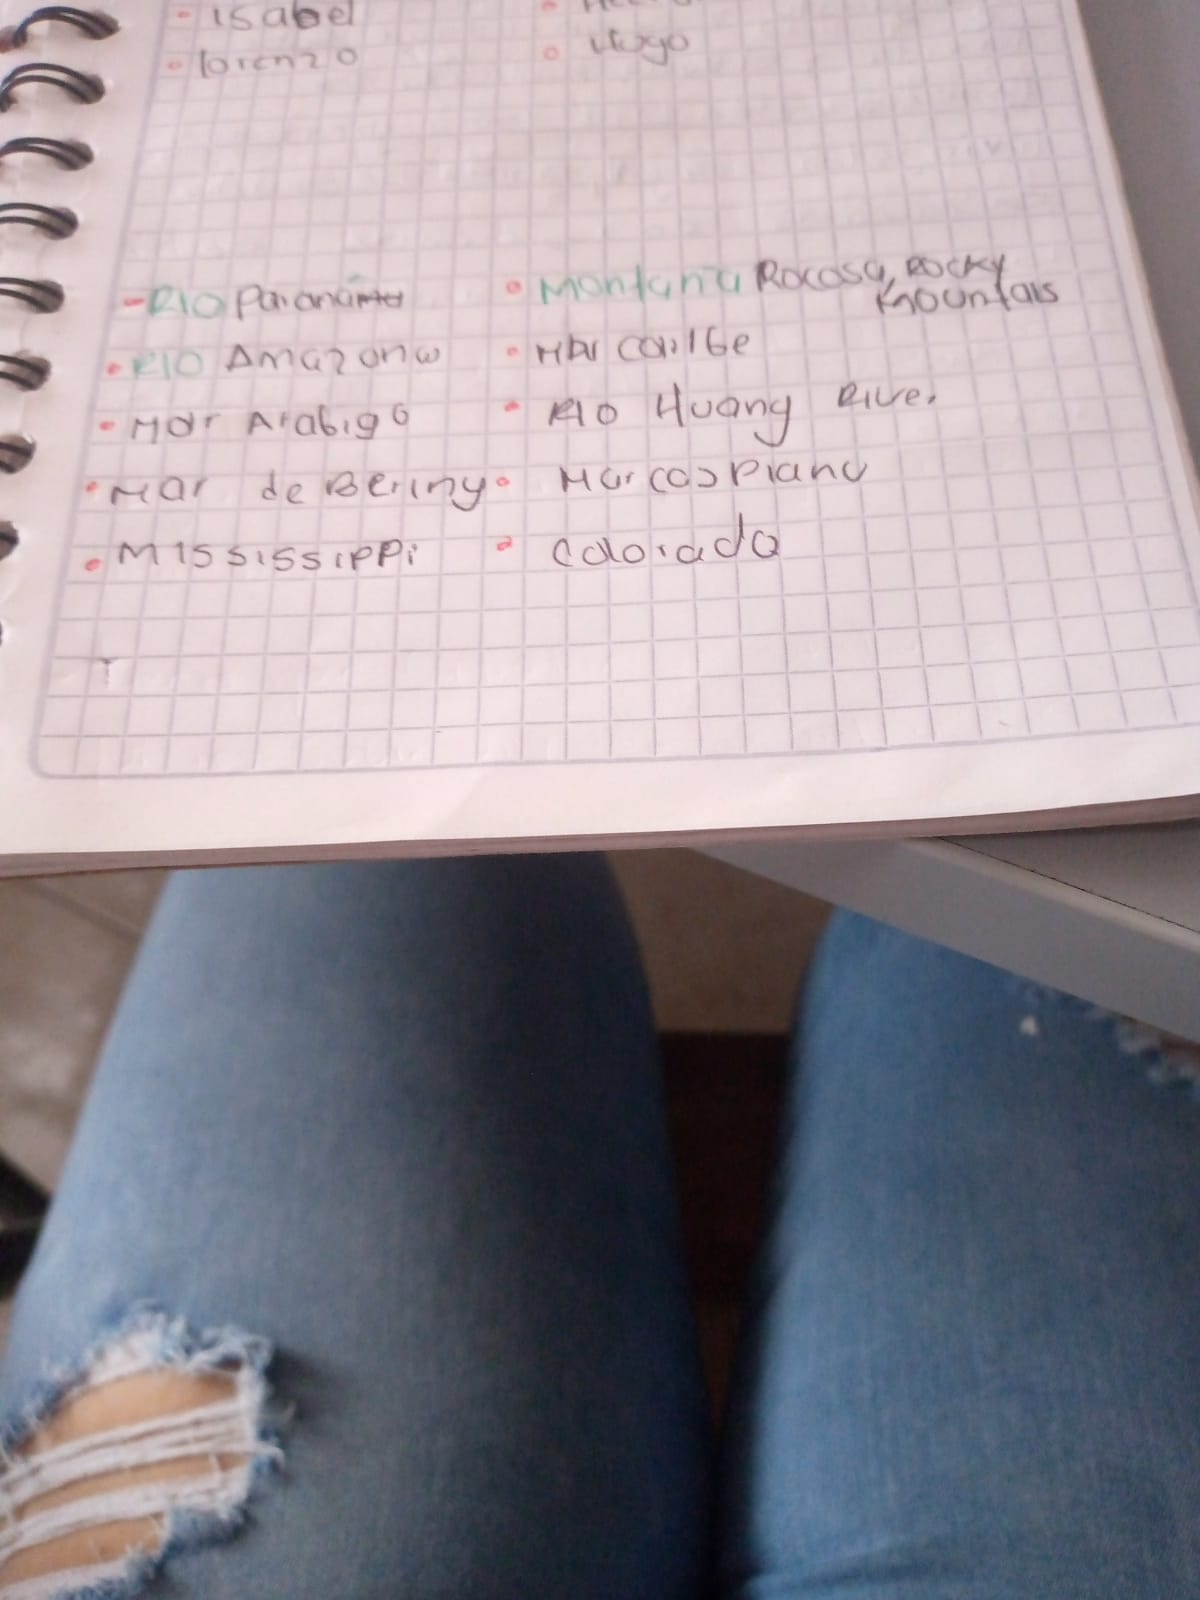 - Isabel
- lorenzo
• Hugo
- RIO Paraná
• RIO Amazona
• Mar Arabigo
• Mar de Bering
• Mississippi
• Montaña Rocosa, Rocky
Mountais
• Mar caribe
• Rio Huang River
• Mar caspiana
• Colorado